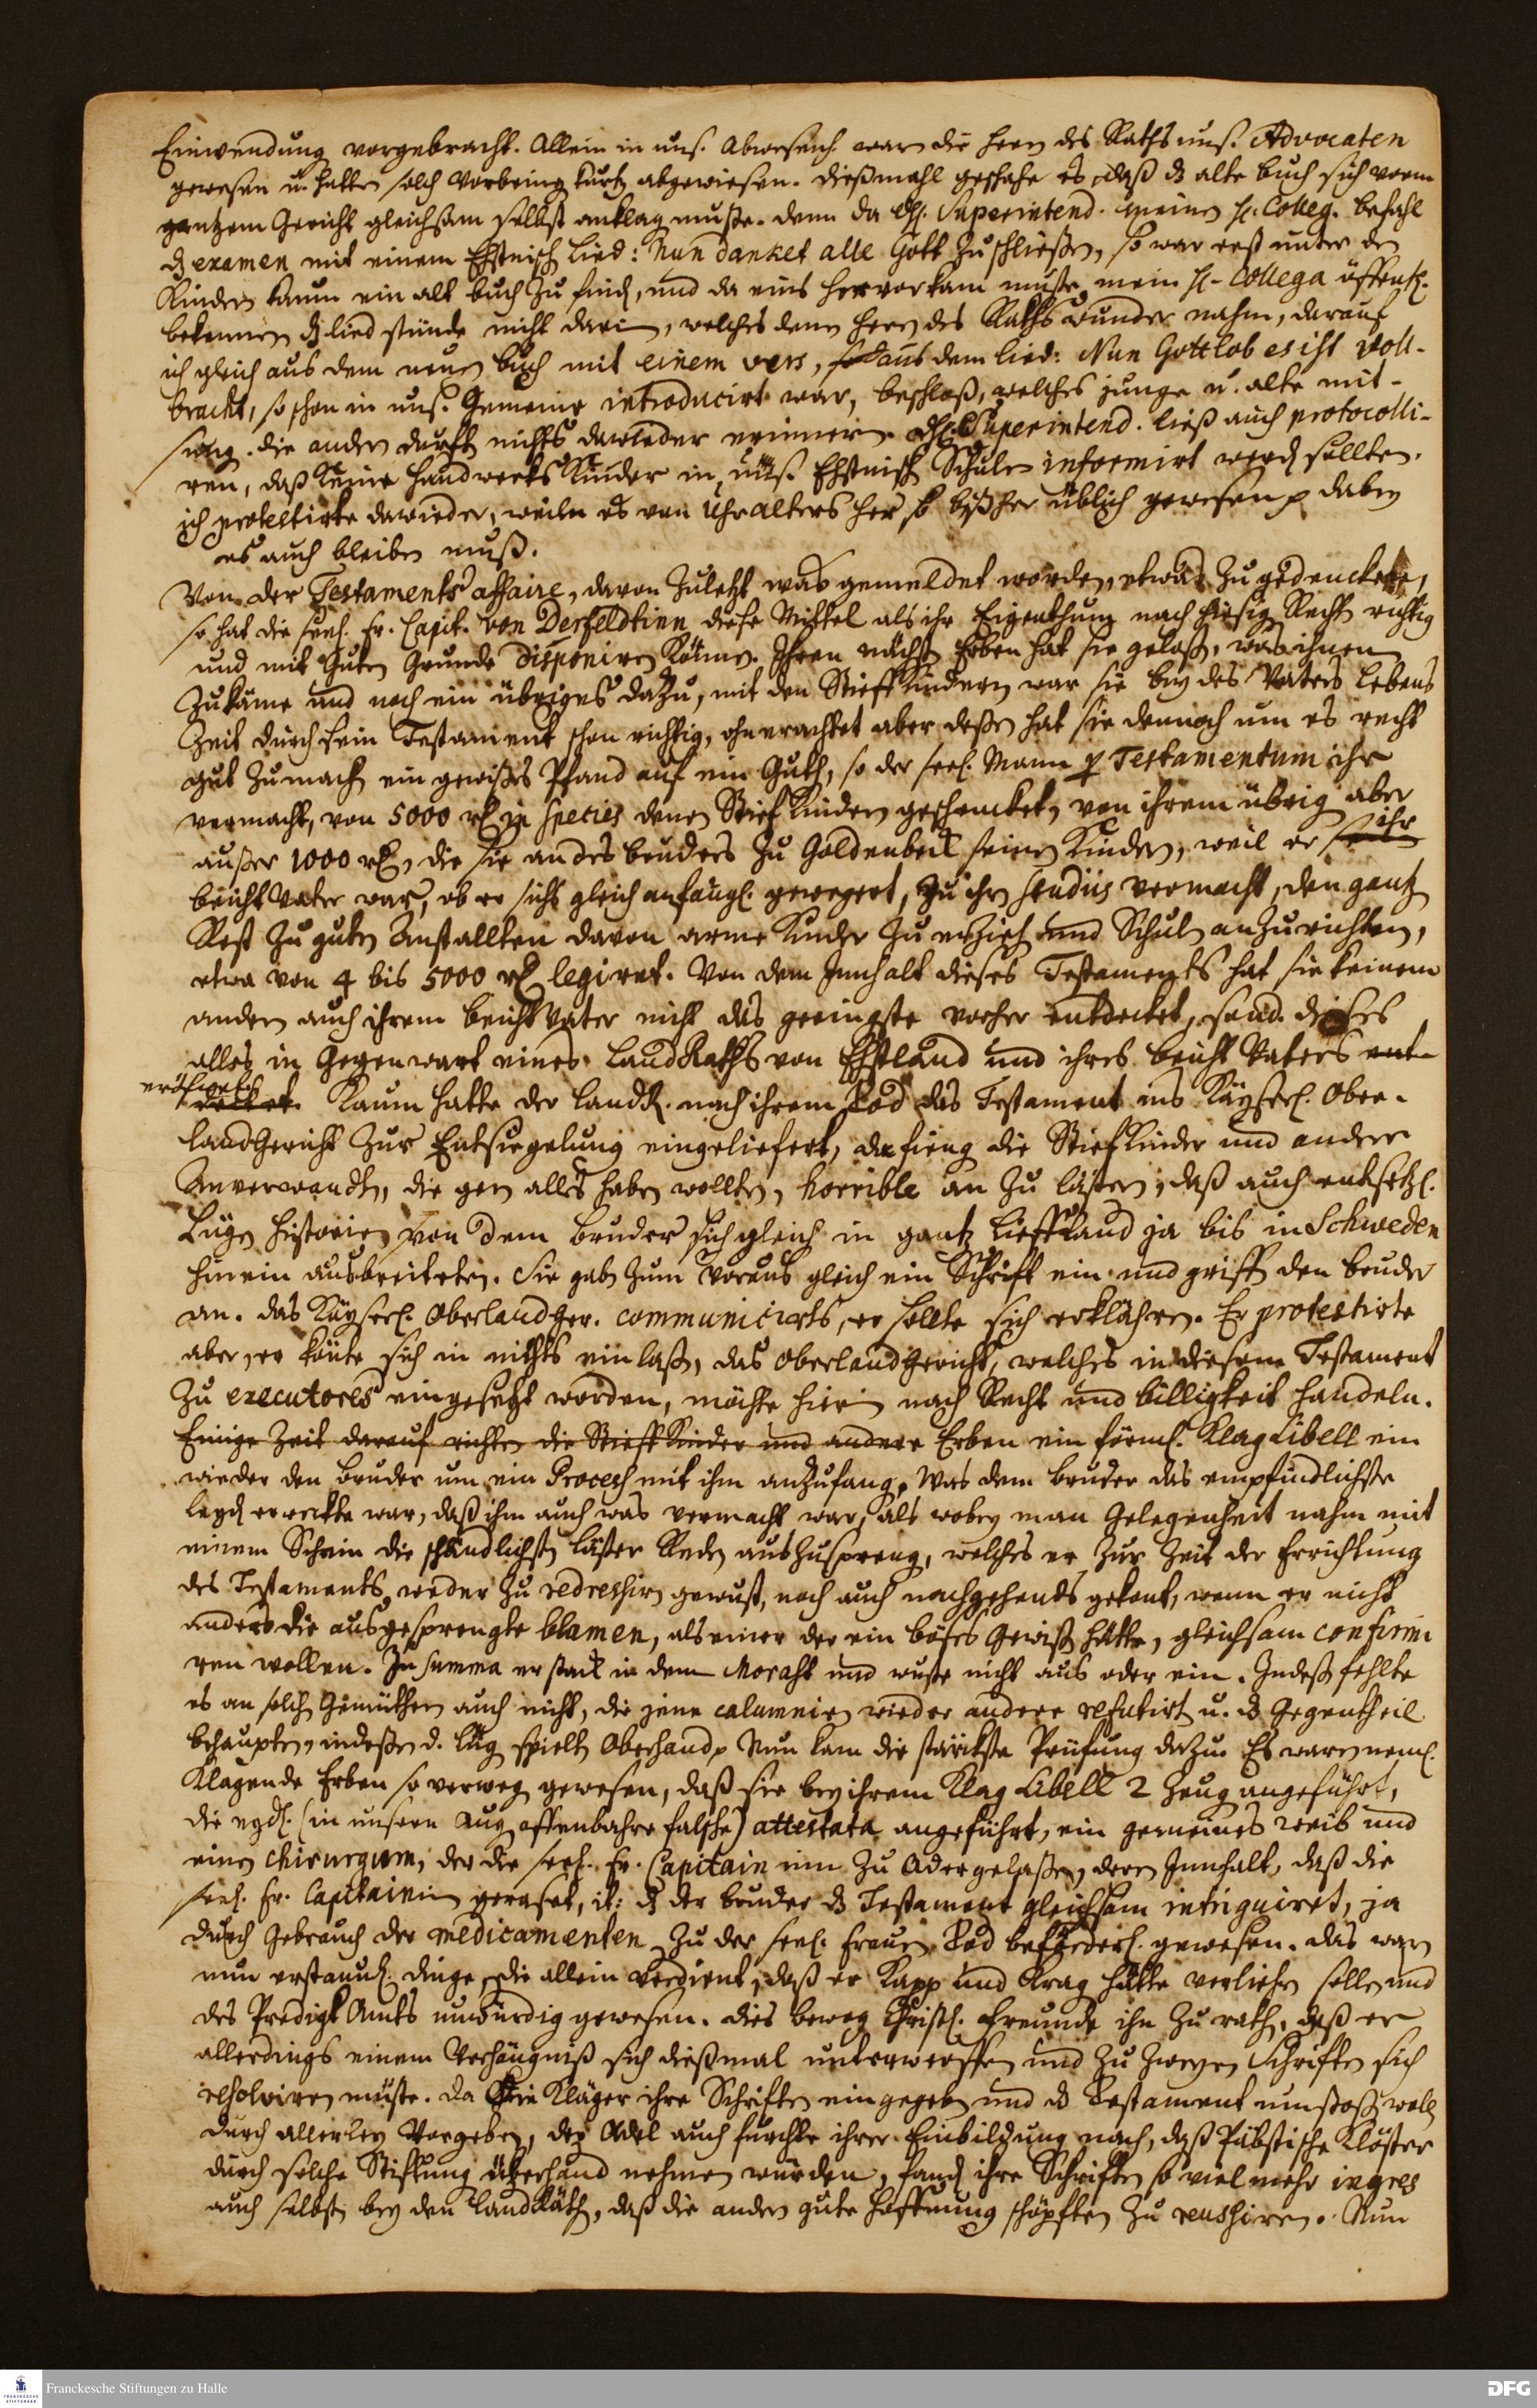 Einwendung vorgebracht. Allein in uns. Abwesenh. waren die Herrn des Raths uns. Advocaten
gewesen u. hatten solch Vorbring kurtz abgewiesen. Dießmahl geschahe es, daß d alte buch sich vorm
gantzem Gericht gleichsam selbst anklag muste. Denn da H. Superintend. meinen H. Colleg. befahl
d examen mit einem Ehstnisch Lied: Nun danket alle Gott zu schließen, so war erst unter den
Kindern kaum ein alt buch zu finden, und da eins hervorkam muste mein H. Collega öffentl.
bekennen d lied stünde nicht darin, welches denen Herrn des Raths wunder nahm, darauf
ich gleich aus dem neuen buch mit einem vers, aus dem lied: Nun Gottlob es ist voll-
bracht, so schon in uns. Gemeine introducirt war, beschloß, welches junge u. alte mit-
sung. die andern durften nichts dawieder erinnern. H. Superintend. ließ auch protocolli-
ren, daß keine Handwerks Kinder in uns. Ehstnisch Schule informirt werden sollten.
ich protestirte dawieder, weiln es von Uhralters her so bißher üblich gewesen p dabey
es auch bleiben muß.
Von der Testaments affaire, davon zuletzt was gemeldet worden, etwas zu gedencken,
so hat die seel. Fr. Capit. von Derfeldtinn diese Mittel als ihr Eigenthum nach hiesig Recht richtig
und mit Guten Grunde disponiren können. Ihren nächst Erben hat sie gelaß, was ihnen
zukäme und noch ein übriges dazu, mit den Stieff Kindern war sie bey des Vaters Lebens
Zeit durch sein Testament schon richtig, ohnerachtet aber deßen hat sie dennoch um es recht
gut zumach ein gewißes Pfand auf ein Guth, so der seel. Mann p Testamentum ihr
vermacht, von 5000 rl in species denen Stief Kindern geschencket, von ihrem übrig aber
außer 1000 rl, die sie an des bruders zu Goldenbeck seinen Kindern, weil er ihr
beicht Vater war, ob er sichs gleich anfängl. gewegert, zu ihren studiis vermacht, den gantz
Rest zu guten Anstallten davon arme Kinder zu erzieh und Schulen anzurichten,
etwa von 4 bis 5000 rl legiret. Von dem Innhalt dieses Testaments hat sie keinem
andern auch ihrem beicht Vater nicht das geringste vorher entdecket, sond. dieses
alles in Gegenwart eines LandRaths von Ehstland und ihres beicht Vaters ent-
eröfnet
decket. Kaum hatte der LandR. nach ihrem Tod das Testament ins Kayserl. Ober-
landGericht zur Entsiegelung eingeliefert, da fieng die Stief Kinder und andere
Anverwandten, die gern alles haben wollten, horrible an zu lästern, daß auch entsetzl.
Lügen historien von dem Bruder sich gleich in gantz Lieffland ja bis in Schweden
hinein ausbreiteten. Sie gaben zum voraus gleich ein Schrift ein und griff den bruder
an. Das Kayserl. Oberlandger. communicirts, er sollte sich erklähren. Er protestirte
aber, er könte sich in nichts einlaß, das Oberlandgericht, welches in diesem Testament
zu executores eingesetzt worden, möchte hierin nach Recht und billigkeit handeln.
Einige Zeit darauf richten die Stieff Kinder und andere Erben ein förml. Klag Libell ein
wieder den bruder um ein Process mit ihm anzufang. Was dem bruder das empfindlichste
leyd erweckte war, daß ihm auch was vermacht war, als wobey man Gelegenheit nahm mit
einem Schein die schändlichst läster Reden auszuspreng, welches er zur Zeit der Errichtung
des Testaments weder zu redressiren gewust, noch auch nachgehends gekont, wenn er nicht
anders die ausgesprengte blamen, als einer der ein böses Gewiß hätte, gleichsam confirmi
ren wollen. In summa er stack in dem Morast und wuste nicht aus oder ein. Indeß fehlte
es an solch Gemüthern auch nicht, die jene calumnien wieder andere refutirt u. d Gegentheil
behaupten, indeßen d. lüg spielte Oberhand p Nun kam die stärckste Prüfung dazu. Es waren neml.
Klagende Erben so verweg gewesen, daß sie bey ihrem Klag Libell 2 Zeug angeführt,
die eydl. (in unsern Aug offenbahre falsche) attestata angeführt, ein gemeines weib und
einen chirurgum, der die seel. Fr. Capitain inn zu Ader gelaßen, deren Innhalt, daß die
seel. Fr. Capitainin geraset, it: d der bruder d Testament gleichsam intriguiret, ja
durch Gebrauch der medicamenten zu der seel. Frauen Tod beförderl. gewesen. Das waren
nun erstaunl. dinge, die allein verdient, daß er Kapp und Krag hätte verliehren sollen und
des Predigt Amts unwürdig gewesen. Dies beweg Christl. Freunde ihn zu rath, daß er
allerdings einem Verhängniß sich dießmal unterwerffen und zu Zweyen Schriften sich
resolviren müste. Da die Kläger ihre Schriften eingegeben und d Testament umstoß woll
durch allerley Vorgeben, der Adel auch furchte ihrer Einbildung nach, daß Päbstische Klöster
durch solche Stiftung überhand nehmen würden, fand ihre Schriften so viel mehr ingres
auch selbst bey den LandRäth, daß die andern gute Hoffnung schöpften zu reussiren. Nun
Franckesche Stiftungen zu Halle
DFG